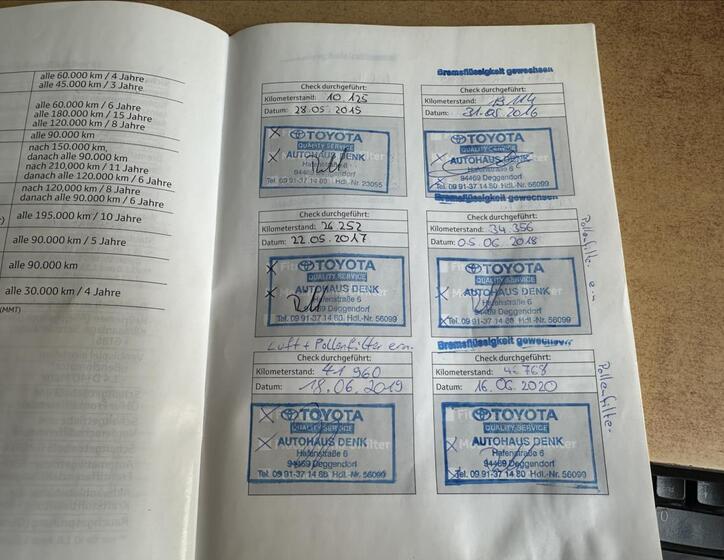 alle 60.000 km / 4 Jahre
alle 45.000 km / 3 Jahre
alle 60.000 km / 6 Jahre
alle 180.000 km / 15 Jahre
alle 120.000 km / 8 Jahre
alle 90.000 km
nach 150.000 km,
danach alle 90.000 km
nach 210.000 km / 11 Jahre
danach alle 120.000 km / 6 Jahre
nach 120.000 km / 8 Jahre
danach alle 90.000 km / 6 Jahre
alle 195.000 km / 10 Jahre
alle 90.000 km / 5 Jahre
alle 90.000 km
alle 30.000 km / 4 Jahre
(MMT)
Check durchgeführt:
Kilometerstand: 10.125
Datum: 28.05.2015
TOYOTA
QUALITY SERVICE
AUTOHAUS DENK
94469 Deggendorf
Tel. 09 91-37 14 80 Hdl.-Nr. 23055
Bremsflüssigkeit gewechselt
Check durchgeführt:
Kilometerstand:
Datum: 31.05.2016
TOYOTA
QUALITY SERVICE
AUTOHAUS DENK
Hafenstraße 6
94469 Deggendorf
Tel. 09 91-37 14 80 Hdl.-Nr. 56099
Check durchgeführt:
Kilometerstand: 26.252
Datum: 22.05.2017
TOYOTA
QUALITY SERVICE
AUTOHAUS DENK
Hafenstraße 6
94469 Deggendorf
Tel. 09 91-37 14 80 Hdl.-Nr. 56099
Luft + Pollenfilter ern.
Bremsflüssigkeit gewechselt
Check durchgeführt:
Kilometerstand: 34.356
Datum: 05.06.2018
TOYOTA
QUALITY SERVICE
AUTOHAUS DENK
Hafenstraße 6
94469 Deggendorf
Tel. 09 91-37 14 80 Hdl.-Nr. 56099
Pollenfilter ern
Check durchgeführt:
Kilometerstand: 41 960
Datum: 18.06.2019
TOYOTA
QUALITY SERVICE
AUTOHAUS DENK
Hafenstraße 6
94469 Deggendorf
Tel. 09 91-37 14 80 Hdl.-Nr. 56099
Bremsflüssigkeit gewechselt
Check durchgeführt:
Kilometerstand: 46 768
Datum: 16.06.2020
TOYOTA
QUALITY SERVICE
AUTOHAUS DENK
Hafenstraße 6
94469 Deggendorf
Tel. 09 91-37 14 80 Hdl.-Nr. 56099
Pollenfilter